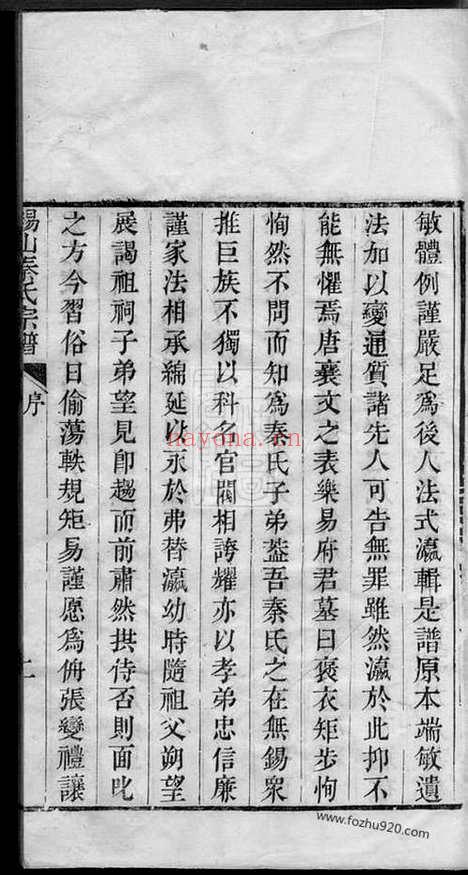 敏體例謹嚴足爲後人法式瀛輯是譜原本端敏遺
法加以變通質諸先人可告無罪雖然瀛於此抑不
能無懼焉唐襄文之表樂易府君墓曰褒衣矩步恂
恂然不問而知爲秦氏子弟葢吾秦氏之在無錫衆
推巨族不獨以科名官閥相誇耀亦以孝弟忠信廉
謹家法相承綿延以永於弗替瀛幼時隨祖父朔望
展謁祖祠子弟望見卽趨而前肅然拱侍否則面叱
之方今習俗日偷蕩軼規矩易謹愿爲侜張變禮讓
錫山秦氏宗譜
序
nayona.cn
www.fozhu920.com